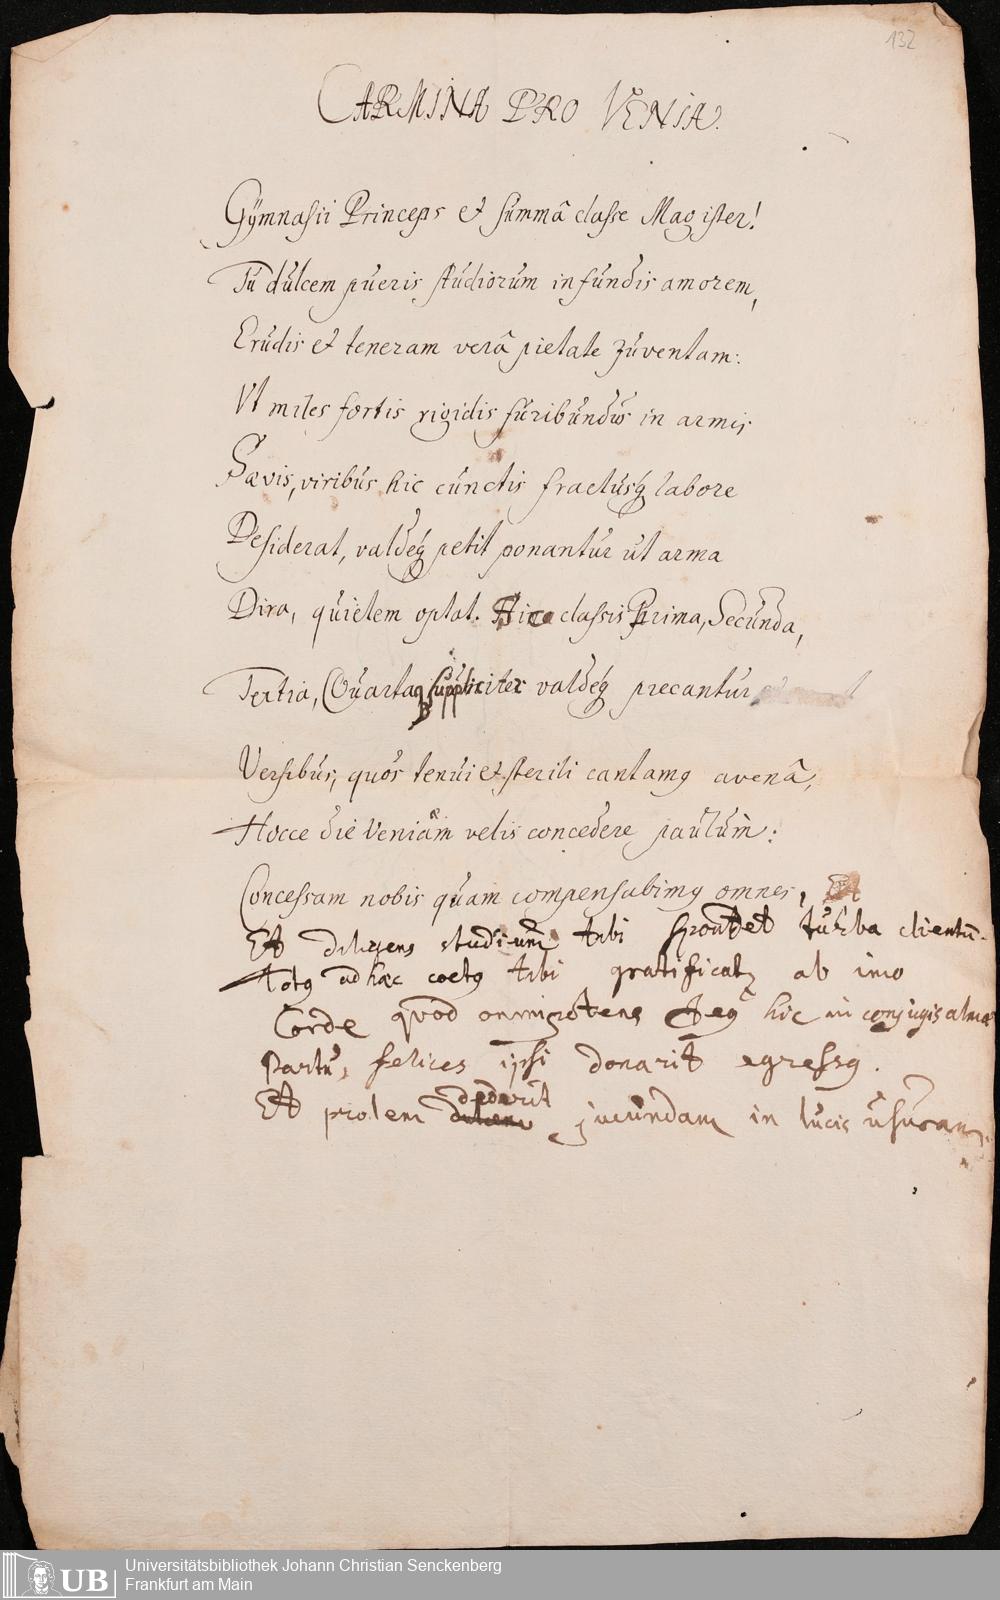 132
CARMINA PRO VENIA.
Gÿmnasii Princeps et summâ classe Magister!
Tu dulcem pueris studiorum infundis amorem,
Erudis et teneram verâ pietate juventam:
Ut miles fortis rigidis furibundus in armis
Sævis, viribus hic cunctis fractusq labore
Desiderat, valdeq petit ponantur ut arma
Dira, quietem optat. classis Prima, Secunda,
Tertia, Quartaq suppliciter valdeq precantur
Versibus, quos tenui et sterili cantamq avenâ,
Hocce die Veniam velis concedere paulum:
Concessam nobis quam compensabimq omnes,
Et diligens studium tibi spondet turba clientum.
Totq adhæc coetq tibi gratificatz ab imo
Corde quod omnipotens hic in conjugis almæ
Partu, felices ipsi donarit egressq.
Et prolem dederit jucundam in lucis usuram.
UB
Universitätsbibliothek Johann Christian Senckenberg
Frankfurt am Main